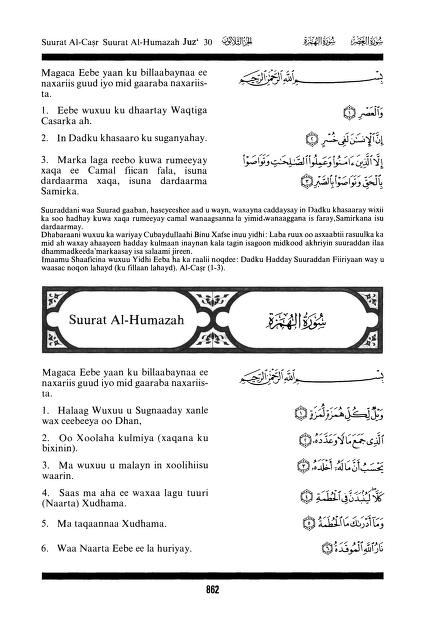 Suurat Al-Caṣr Suurat Al-Humazah Juz' 30 الجزء الثلاثون سورة الهمزة سورة العصر
Magaca Eebe yaan ku billaabaynaa ee
naxariis guud iyo mid gaaraba naxariis-
ta.
بِسْمِ اللَّهِ الرَّحْمَٰنِ الرَّحِيمِ
1. Eebe wuxuu ku dhaartay Waqtiga
Casarka ah.
وَالْعَصْرِ ۝١
2. In Dadku khasaaro ku suganyahay.
إِنَّ الْإِنسَانَ لَفِي خُسْرٍ ۝٢
3. Marka laga reebo kuwa rumeeyay
xaqa ee Camal fiican fala, isuna
dardaarma xaqa, isuna dardaarma
Samirka.
إِلَّا الَّذِينَ ءَامَنُوا وَعَمِلُوا الصَّالِحَاتِ وَتَوَاصَوْا
بِالْحَقِّ وَتَوَاصَوْا بِالصَّبْرِ ۝٣
Suuraddani waa Suurad gaaban, haseyeeshee aad u wayn, waxayna caddaysay in Dadku khasaaray wixii
ka soo hadhay kuwa xaqa rumeeyay camal wanaagsanna la yimid.wanaaggana is faray,Samirkana isu
dardaarmay.
Dhabaraani wuxuu ka wariyay Cubaydullaahi Binu Xafse inuu yidhi: Laba ruux oo asxaabtii rasuulka ka
mid ah waxay ahaayeen hadday kulmaan inaynan kala tagin isagoon midkood akhriyin suuraddan ilaa
dhammadkeeda'markaasay isa salaami jireen.
Imaamu Shaaficina wuxuu Yidhi Eeba ha ka raalii noqdee: Dadku Hadday Suuraddan Fiiriyaan way u
waasac noqon lahayd (ku fillaan lahayd). Al-Caṣr (1-3).
Suurat Al-Humazah
سُورَةُ الْهُمَزَةِ
Magaca Eebe yaan ku billaabaynaa ee
naxariis guud iyo mid gaaraba naxariis-
ta.
بِسْمِ اللَّهِ الرَّحْمَٰنِ الرَّحِيمِ
1. Halaag Wuxuu u Sugnaaday xanle
wax ceebeeya oo Dhan,
وَيْلٌ لِّكُلِّ هُمَزَةٍ لُّمَزَةٍ ۝١
2. Oo Xoolaha kulmiya (xaqana ku
bixinin).
الَّذِي جَمَعَ مَالًا وَعَدَّدَهُ ۝٢
3. Ma wuxuu u malayn in xoolihiisu
waarin.
يَحْسَبُ أَنَّ مَالَهُ أَخْلَدَهُ ۝٣
4. Saas ma aha ee waxaa lagu tuuri
(Naarta) Xudhama.
كَلَّا لَيُنبَذَنَّ فِي الْحُطَمَةِ ۝٤
5. Ma taqaannaa Xudhama.
وَمَا أَدْرَاكَ مَا الْحُطَمَةُ ۝٥
6. Waa Naarta Eebe ee la huriyay.
نَارُ اللَّهِ الْمُوقَدَةُ ۝٦
862